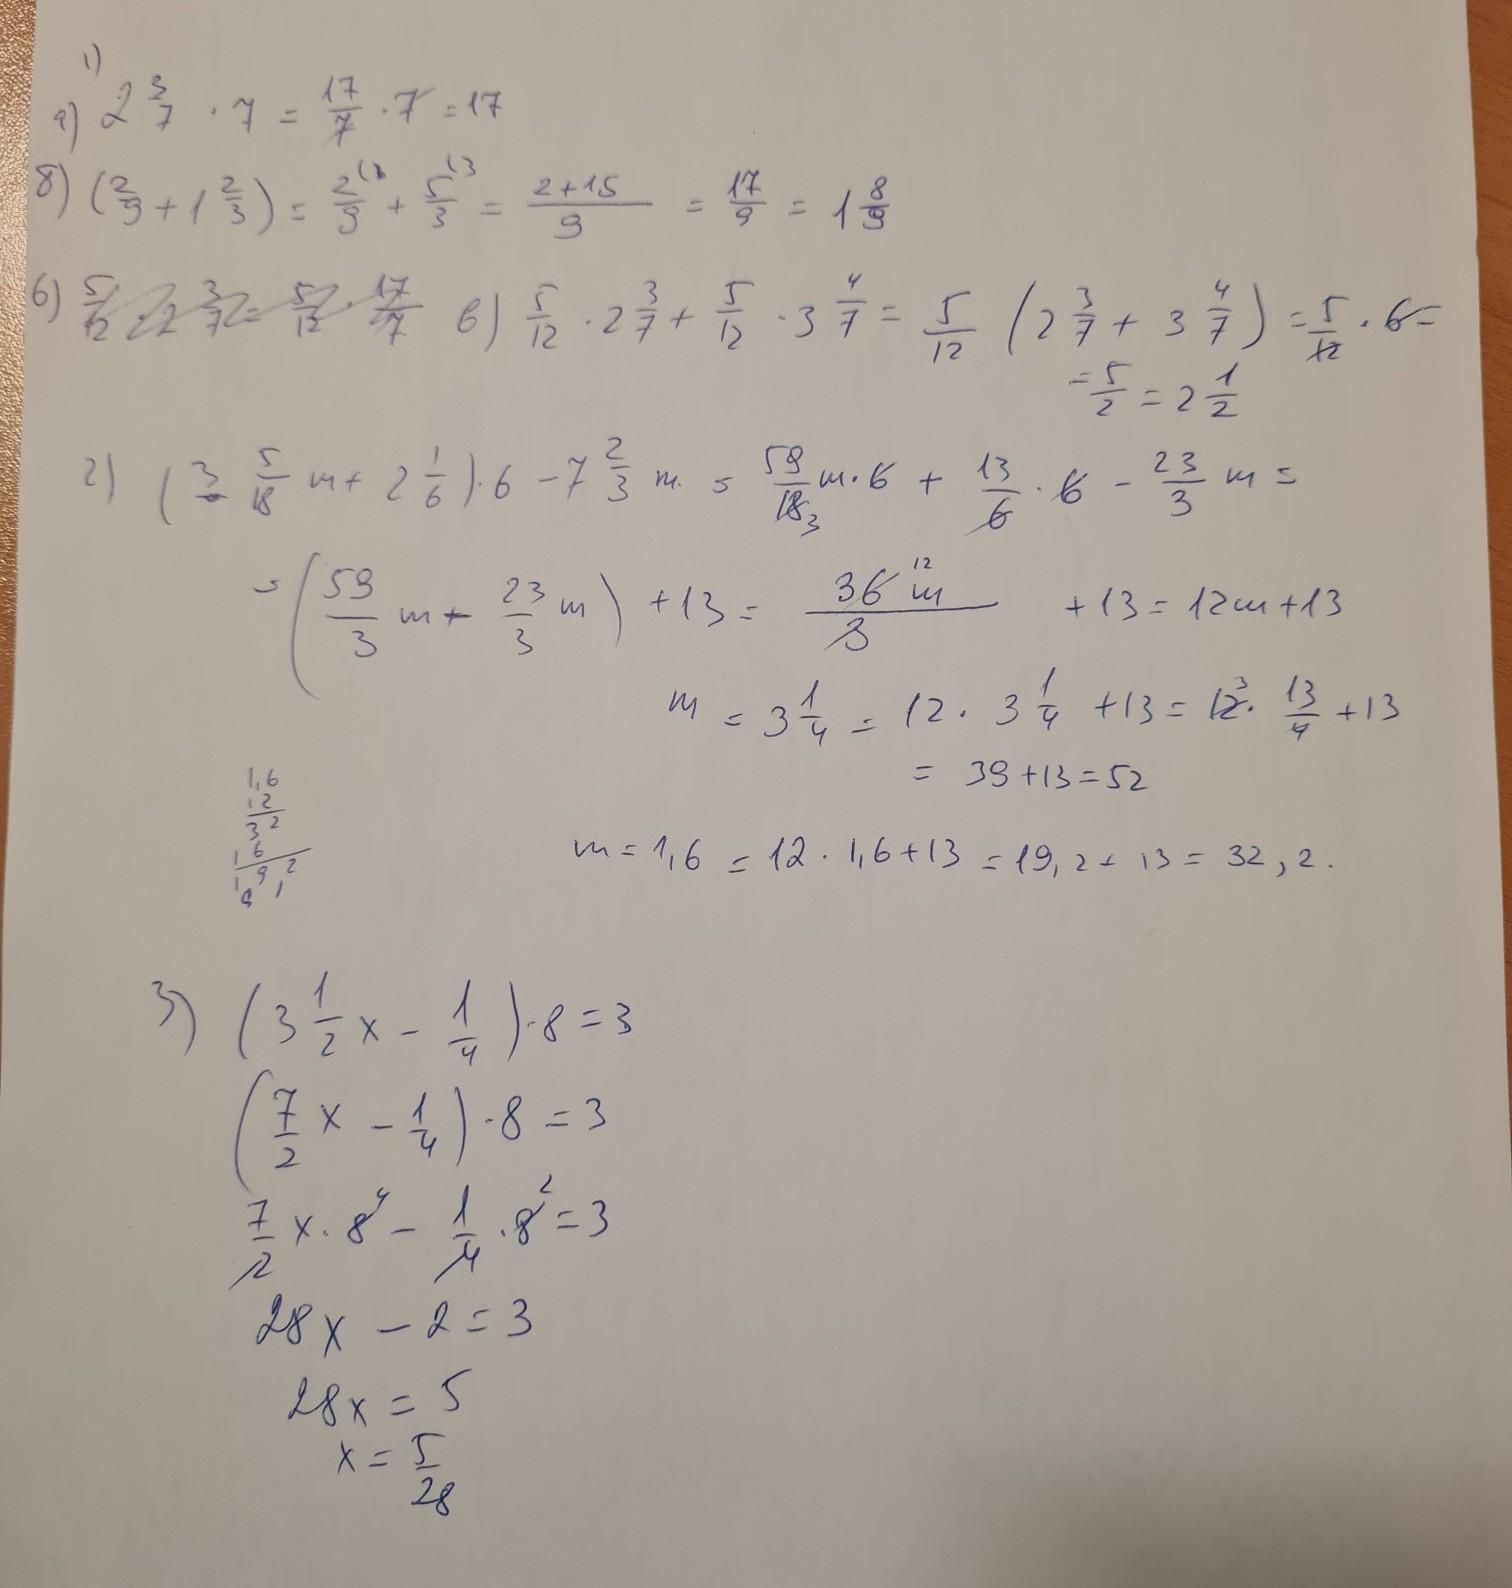 1)
а) 2 3/7 · 7 = 17/7 · 7 = 17
б) (2/9 + 1 2/3) = 2/9 + 5/3 = (2+15)/9 = 17/9 = 1 8/9
в) 5/12 · 2 3/7 = 5/12 · 17/7 в) 5/12 · 2 3/7 + 5/12 · 3 4/7 = 5/12 (2 3/7 + 3 4/7) = 5/12 · 6 =
= 5/2 = 2 1/2
2) (3 5/18 m + 2 1/6) · 6 − 7 2/3 m = 59/18 m · 6 + 13/6 · 6 − 23/3 m =
= (59/3 m − 23/3 m) + 13 = 36m/3 + 13 = 12m + 13
m = 3 1/4 = 12 · 3 1/4 + 13 = 12 · 13/4 + 13
= 39 + 13 = 52
1,6
12
32
16
19,2
m = 1,6 = 12 · 1,6 + 13 = 19,2 + 13 = 32,2.
3) (3 1/2 x − 1/4) · 8 = 3
(7/2 x − 1/4) · 8 = 3
7/2 x · 8 − 1/4 · 8 = 3
28x − 2 = 3
28x = 5
x = 5/28